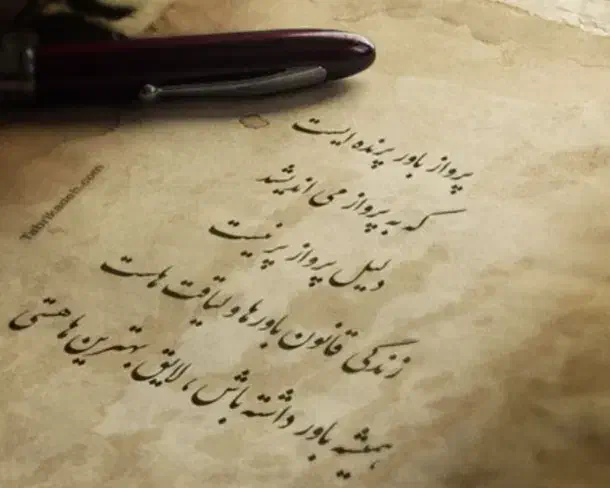 پرواز باور پرنده ایست
که به پرواز می اندیشد
دلیل پرواز پر نیست
زندگی قانون باورها و لیاقت هاست
همیشه باور داشته باش ، لایق بهترین ها هستی
Tabrikaneh.com